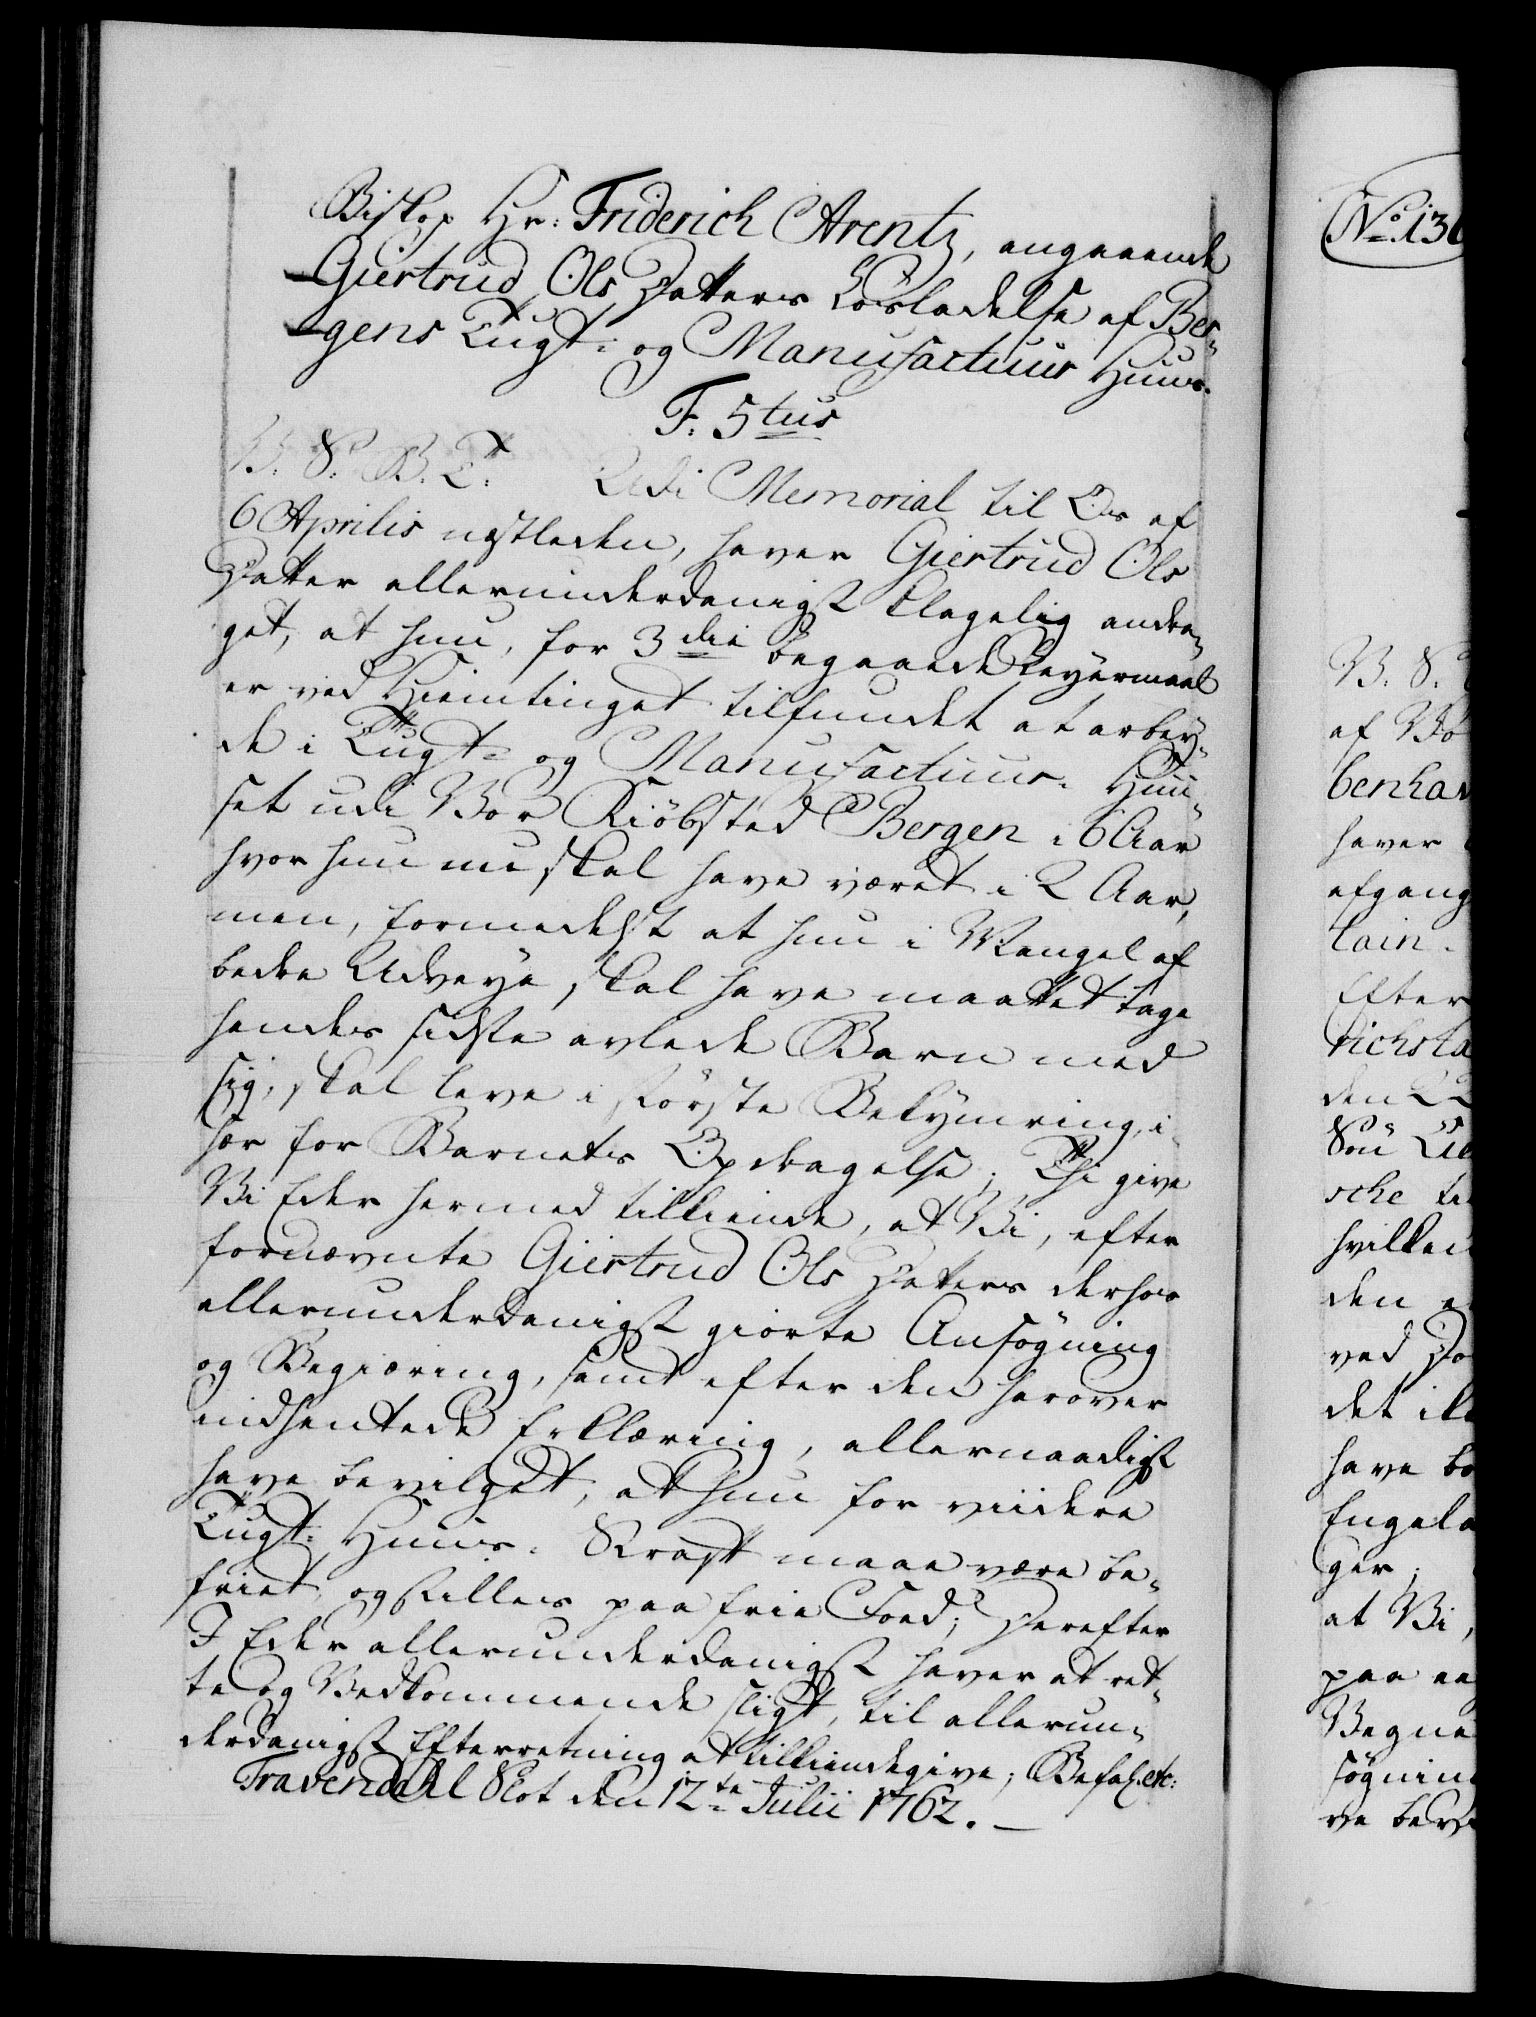 Biskop Hr: Friderich Arentz, angaaende
Giertrud Ols Datters Løsladelse af Ber-
gens Tugt- og Manufactuur Huus.
F. 5tus
V. S. G. T. Udi Memorial til Os af
6 Aprilis næstleden, haver Giertrud Ols
Datter allerunderdanigst klagelig andra-
get, at hun, for 3die begaaede Leyermaal
er ved Hiemtinget tilfundet at arbey-
de i Tugt- og Manufactuur- Huu-
set udi Vor Kiöbsted Bergen i 6 Aar
hvor hun nu skal have været i 2 Aar,
men, formedelst at hun i Mangel af
bedre Udveye, skal have maattet tage
hendes sidste avlede Barn med
sig, skal leve i störste Bekymring, i-
sær for Barnets Opdragelse; Thi give
Vi Eder hermed tilkiende, at Vi, efter
fornævnte Giertrud Ols Datters derhos
allerunderdanigst giorte Ansögning
og Begiæring, samt efter den herover
indhentede Erklæring, allernaadigst
have bevilget, at hun for viidere
Tugt- Huus- Straff maae være be-
friet, og stilles paa frie Foed; Derefter
I Eder allerunderdanigst haver at ret-
te og Vedkommende sligt, til allerun-
derdanigst Efterretning at tilkiendegive; Befal. etc:
Travendahl Slot den 12te Julii 1762.
No. 136
V. S.
af Vo
benhav
haver
afgang
tain
Efter
richsta
den
Sön
sche
hvilken
den
ved Do
det
have be
Engela
ger;
at Vi,
paa
Vegne
sögnin
ve bev